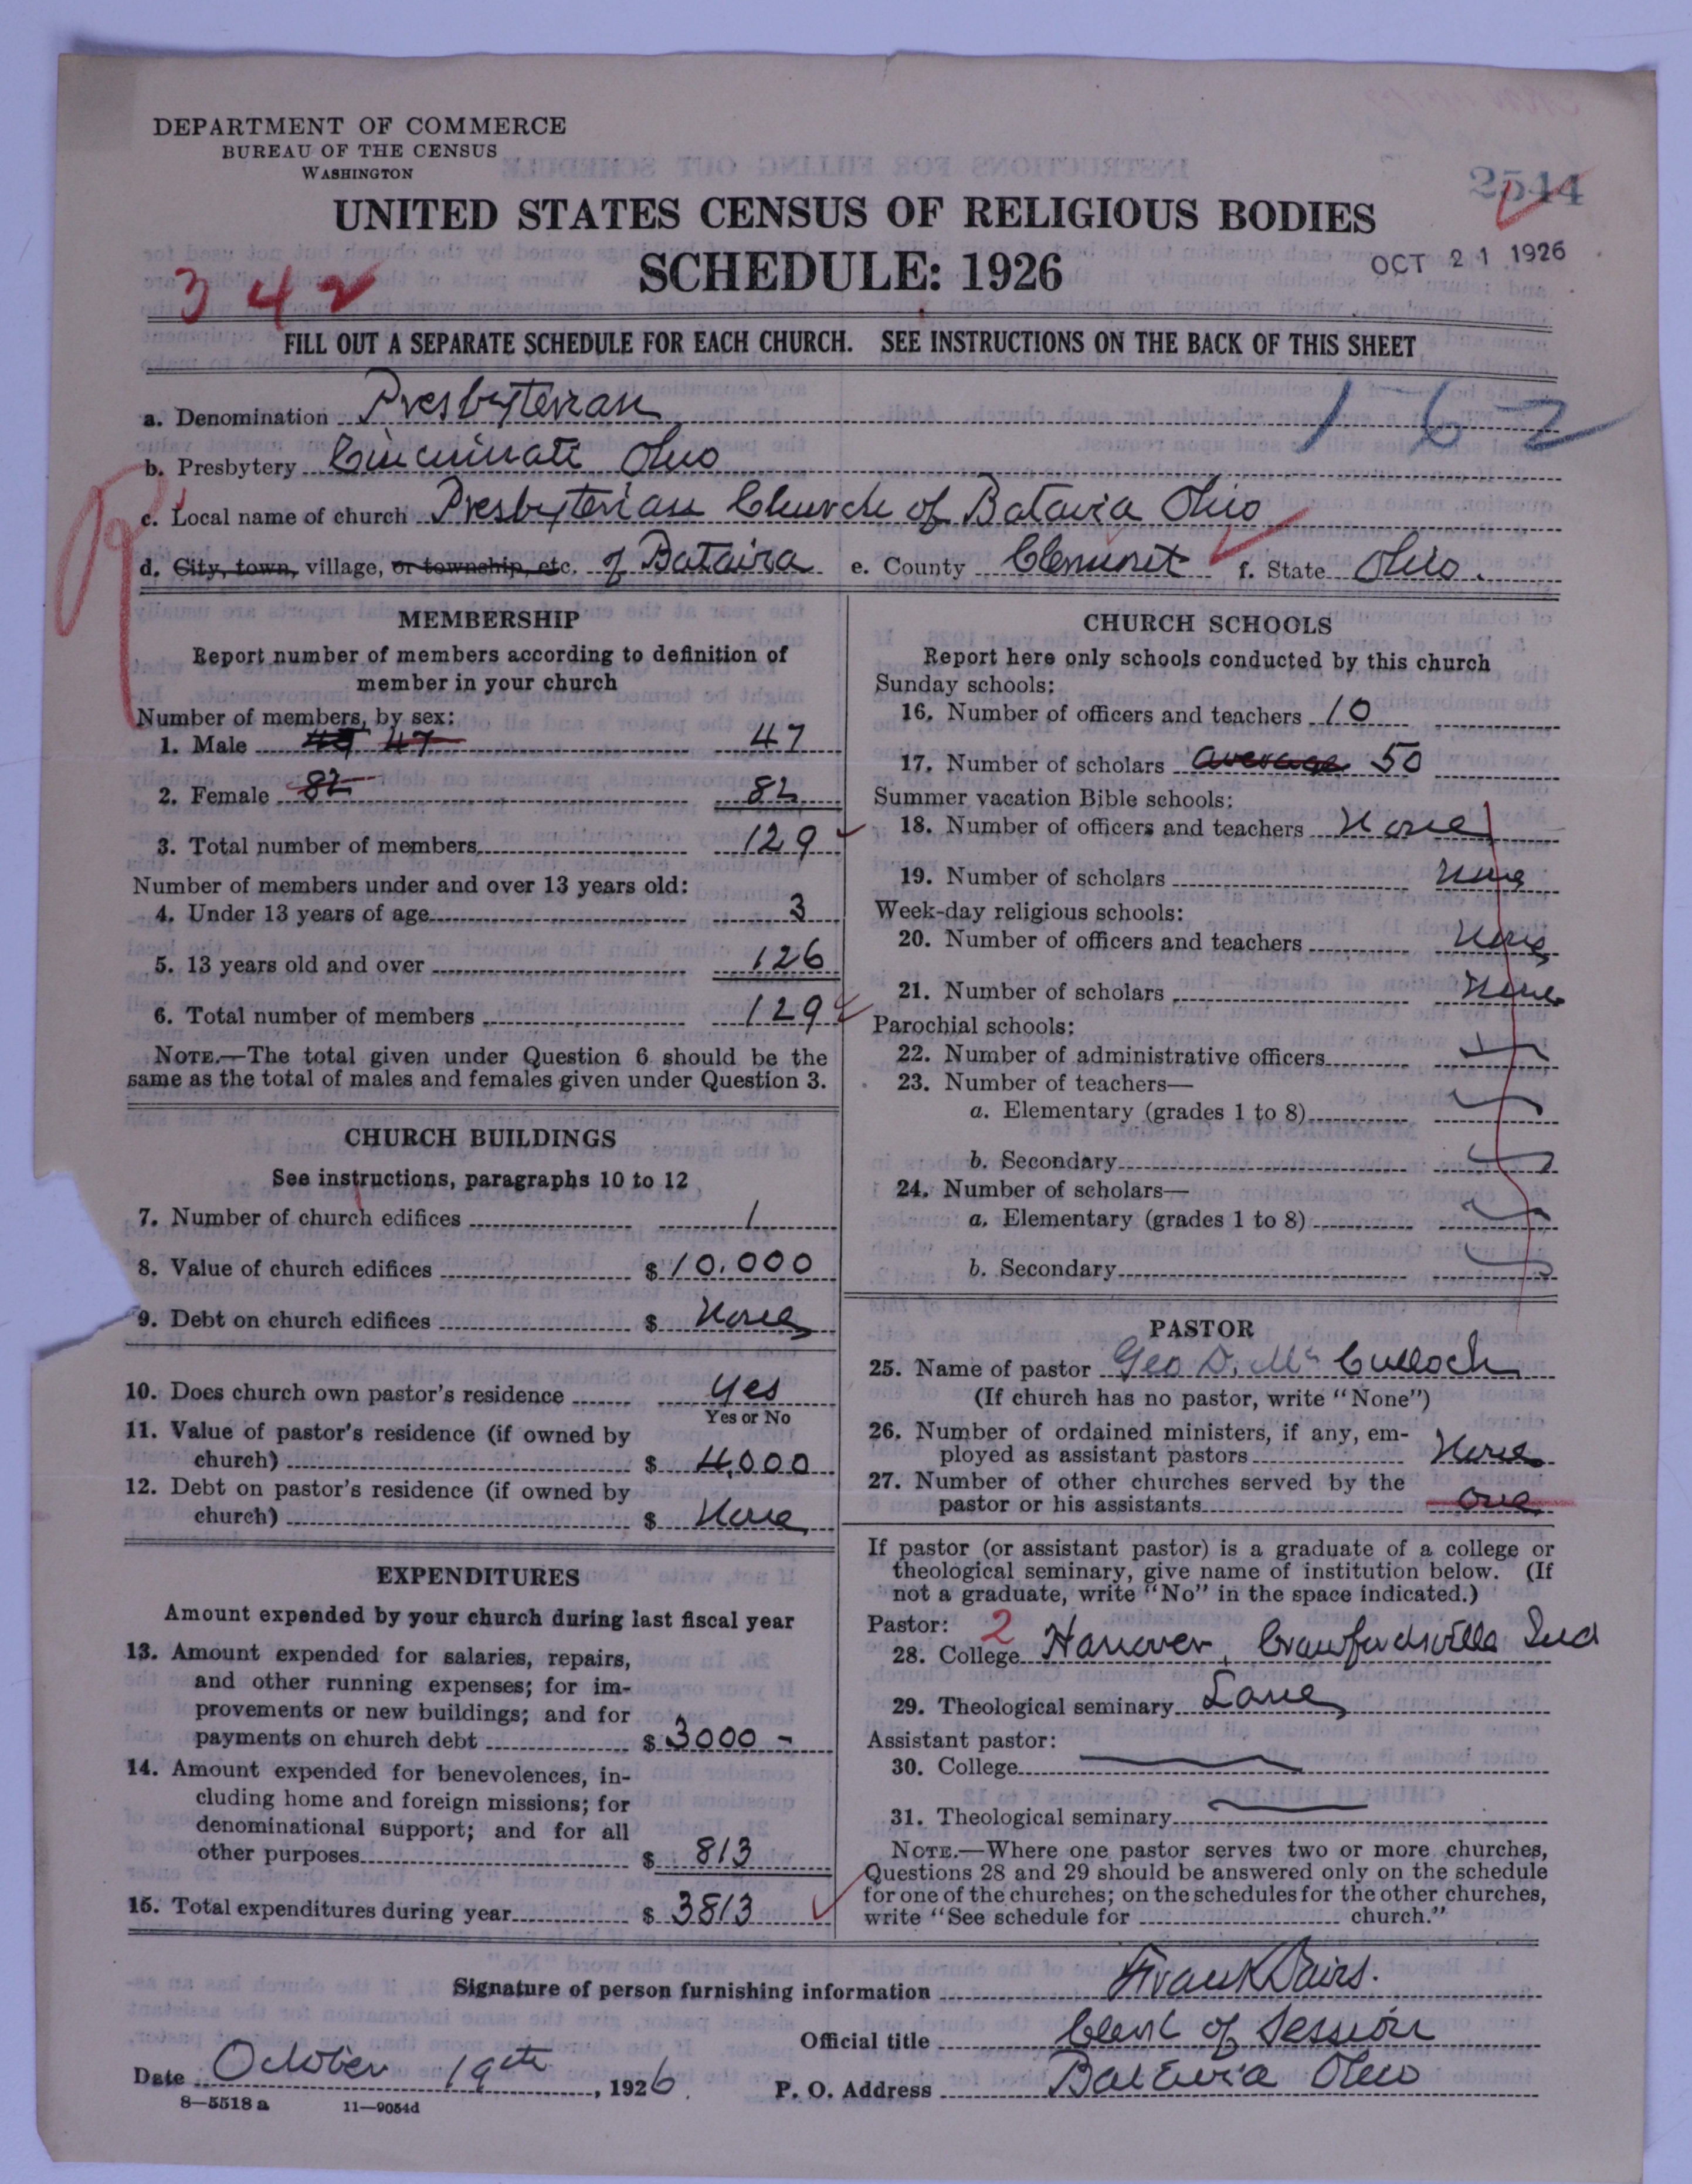 DEPARTMENT OF COMMERCE
BUREAU OF THE CENSUS
WASHINGTON
2544
UNITED STATES CENSUS OF RELIGIOUS BODIES
SCHEDULE: 1926
OCT 21 1926
342
FILL OUT A SEPARATE SCHEDULE FOR EACH CHURCH. SEE INSTRUCTIONS ON THE BACK OF THIS SHEET
a. Denomination Presbyterian
162
b. Presbytery Cincinnati Ohio
c. Local name of church Presbyterian Church of Batavia Ohio
d. City, town, village, or township, etc. of Batavia e. County Clermont f. State Ohio.
MEMBERSHIP
Report number of members according to definition of
member in your church
Number of members, by sex:
1. Male 47 47
2. Female 82 82
3. Total number of members 129
Number of members under and over 13 years old:
4. Under 13 years of age 3
5. 13 years old and over 126
6. Total number of members 129
NOTE.—The total given under Question 6 should be the
same as the total of males and females given under Question 3.
CHURCH BUILDINGS
See instructions, paragraphs 10 to 12
7. Number of church edifices 1
8. Value of church edifices $ 10,000
9. Debt on church edifices $ None
10. Does church own pastor's residence Yes
Yes or No
11. Value of pastor's residence (if owned by
church) $ 4,000
12. Debt on pastor's residence (if owned by
church) $ None
EXPENDITURES
Amount expended by your church during last fiscal year
13. Amount expended for salaries, repairs,
and other running expenses; for im-
provements or new buildings; and for
payments on church debt $ 3000 -
14. Amount expended for benevolences, in-
cluding home and foreign missions; for
denominational support; and for all
other purposes $ 813
15. Total expenditures during year $ 3813
CHURCH SCHOOLS
Report here only schools conducted by this church
Sunday schools:
16. Number of officers and teachers 10
17. Number of scholars average 50
Summer vacation Bible schools:
18. Number of officers and teachers None
19. Number of scholars None
Week-day religious schools:
20. Number of officers and teachers None
21. Number of scholars None
Parochial schools:
22. Number of administrative officers
23. Number of teachers—
a. Elementary (grades 1 to 8)
b. Secondary
24. Number of scholars—
a. Elementary (grades 1 to 8)
b. Secondary
PASTOR
25. Name of pastor Geo D. McCulloch
(If church has no pastor, write "None")
26. Number of ordained ministers, if any, em-
ployed as assistant pastors None
27. Number of other churches served by the
pastor or his assistants one
If pastor (or assistant pastor) is a graduate of a college or
theological seminary, give name of institution below. (If
not a graduate, write "No" in the space indicated.)
Pastor: 2
28. College Hanover, Crawfordsville Ind
29. Theological seminary Lane
Assistant pastor:
30. College
31. Theological seminary
NOTE.—Where one pastor serves two or more churches,
Questions 28 and 29 should be answered only on the schedule
for one of the churches; on the schedules for the other churches,
write "See schedule for church."
Signature of person furnishing information Frank Davis.
Official title Clerk of Session
Date October 19th, 1926 P. O. Address Batavia Ohio
8—5518 a 11—9054d